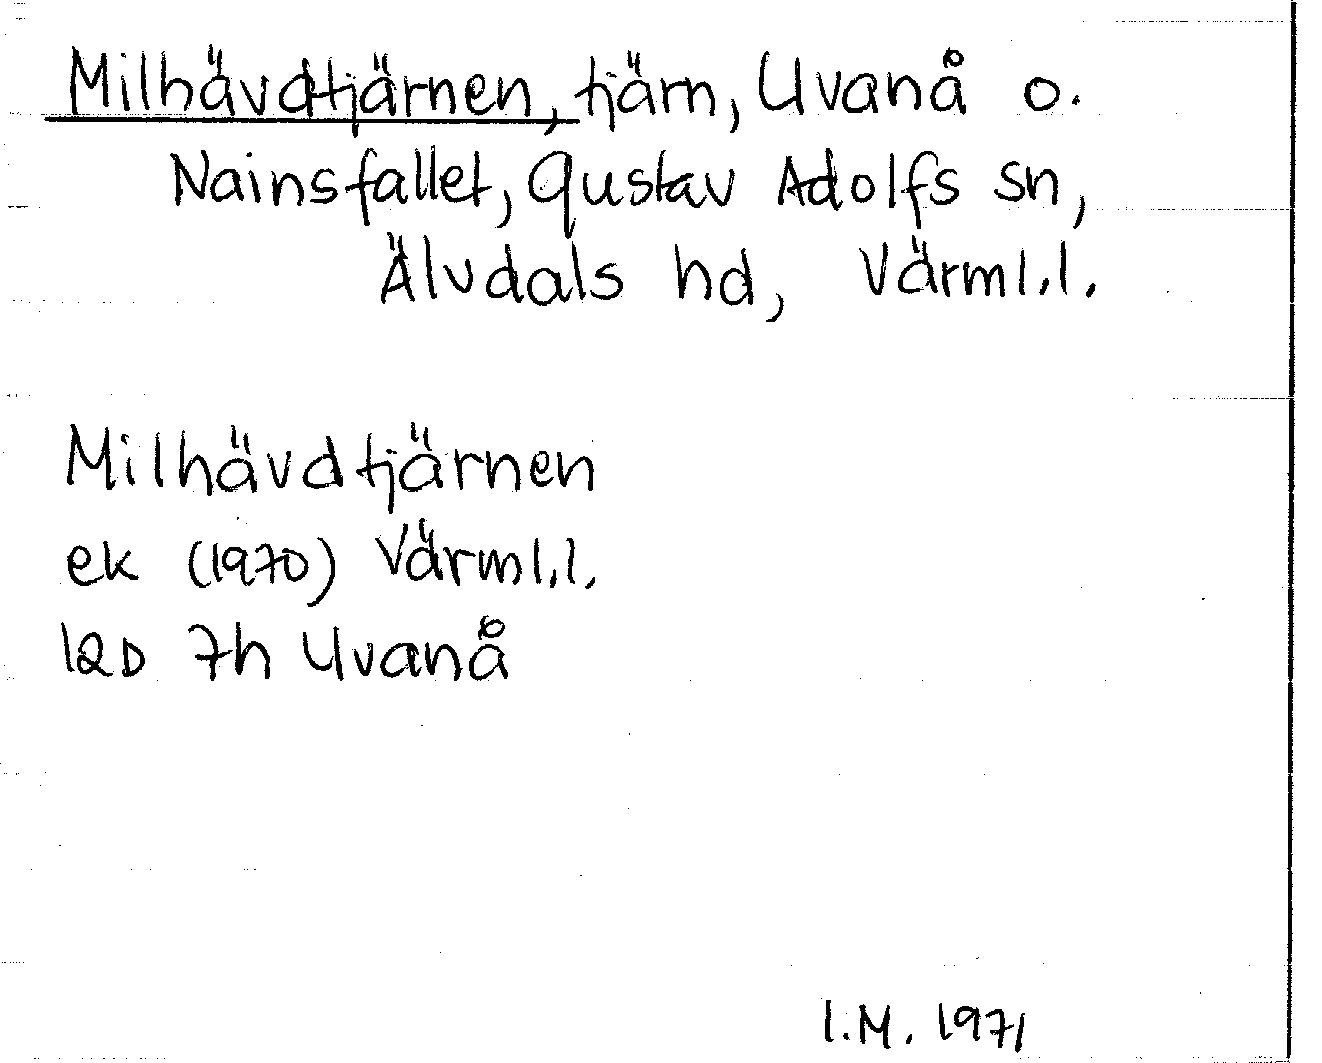 Milhävdtjärnen, tjärn, Uvanå o.
Nainsfallet, Gustav Adolfs sn,
Älvdals hd, Värml.l.
Milhävdtjärnen
ek (1970) Värml.l.
12D 7h Uvanå
I.M. 1971